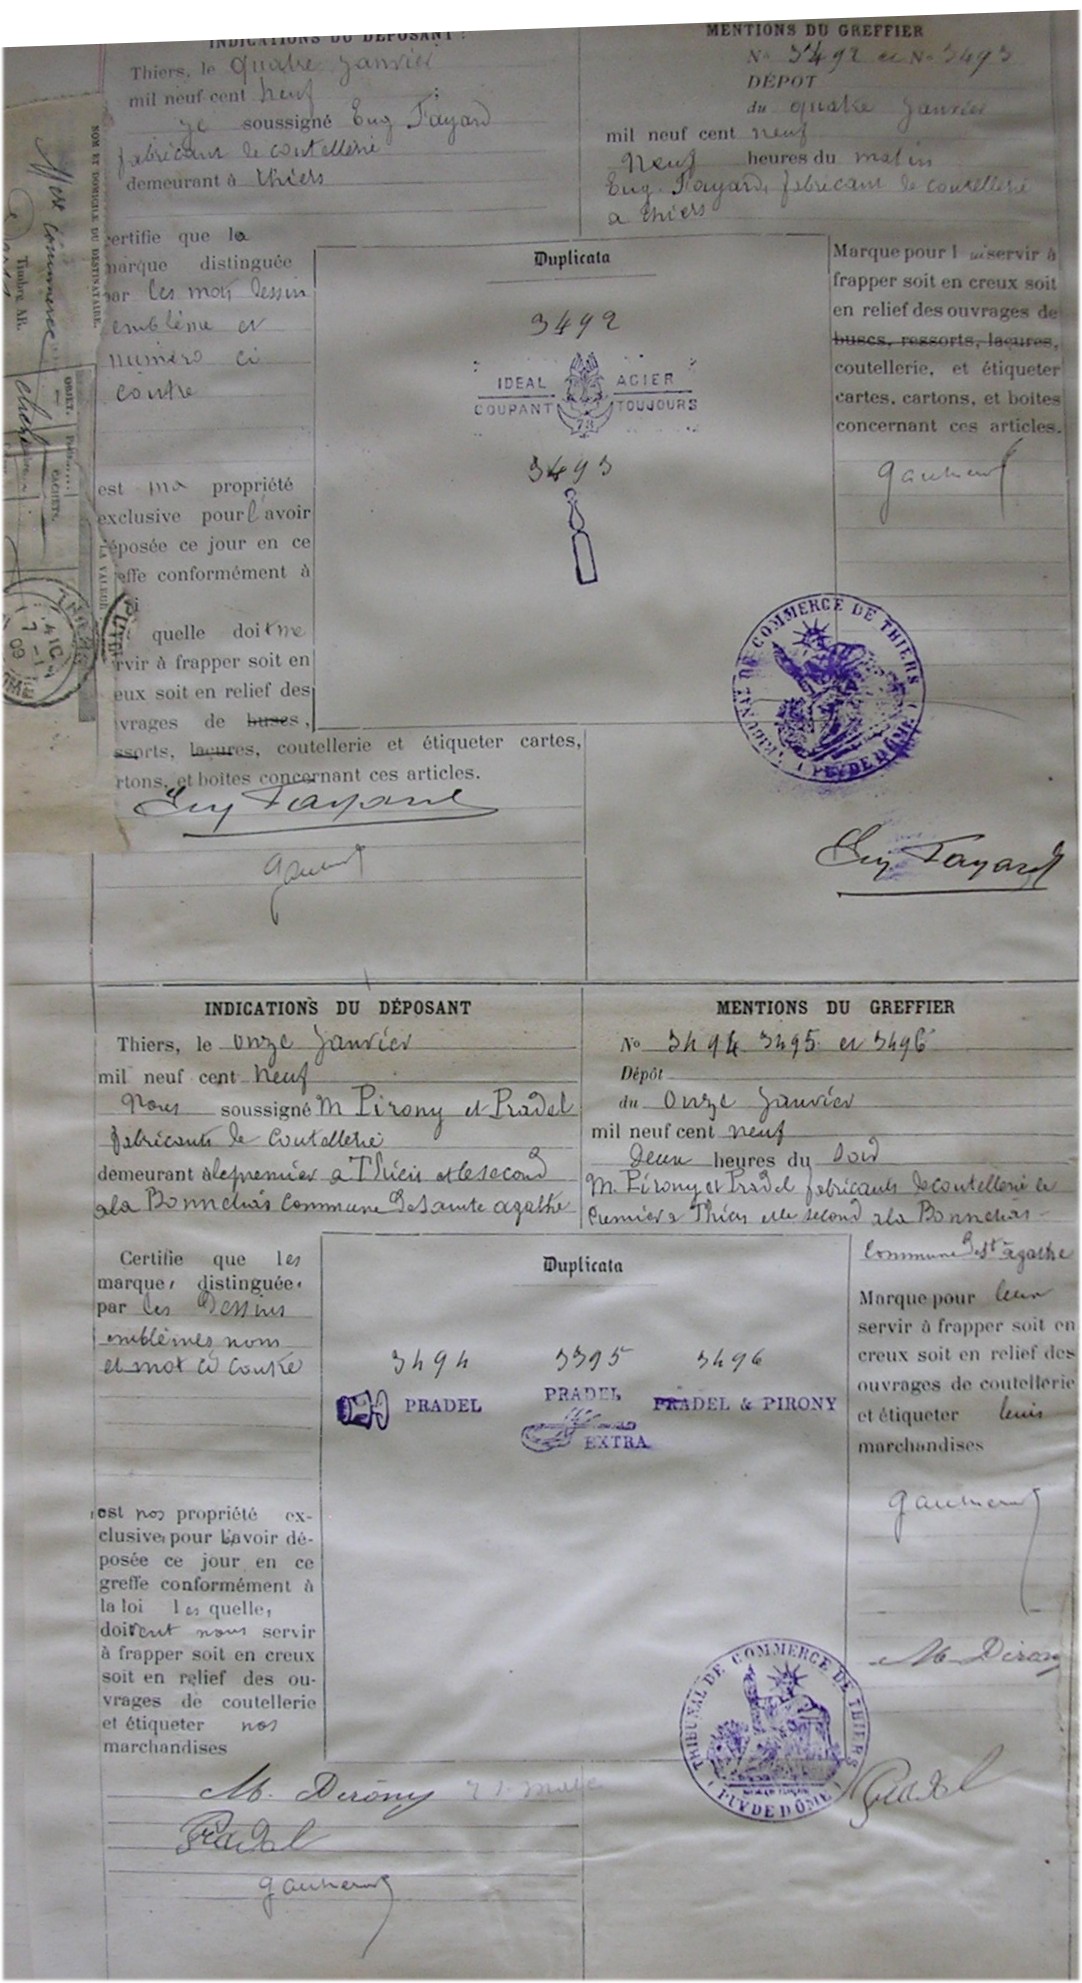 INDICATIONS DU DÉPOSANT :
Thiers, le quatre Janvier
mil neuf cent neuf
je soussigné Eug Fayard
fabricant de coutellerie
demeurant à thiers
MENTIONS DU GREFFIER
No 3492 et No 3493
DÉPOT
du quatre Janvier
mil neuf cent neuf
Neuf heures du matin
Eug. Fayard, fabricant de coutellerie
a thiers
NOM ET DOMICILE DU DESTINATAIRE.
Timbre AR.
OBJET.
CACHETS.
LA VALEUR
certifie que la
marque distinguée
par les mots dessin
emblème et
numéro ci
contre
est ma propriété
exclusive pour l'avoir
éposée ce jour en ce
effe conformément à
quelle doit me
rvir à frapper soit en
eux soit en relief des
vrages de buses,
ssorts, laçures, coutellerie et étiqueter cartes,
rtons, et boites concernant ces articles.
Eug Fayard
Duplicata
3492
IDEAL ACIER
COUPANT TOUJOURS
73
3493
Marque pour l ui servir à
frapper soit en creux soit
en relief des ouvrages de
buscs, ressorts, laçures,
coutellerie, et étiqueter
cartes, cartons, et boites
concernant ces articles.
TRIBUNAL DE COMMERCE DE THIERS
PUY DE DÔME
Eug Fayard
INDICATIONS DU DÉPOSANT
Thiers, le onze Janvier
mil neuf cent Neuf
Nous soussigné M Pirony et Pradel
fabricants de Coutellerie
demeurant à le premier a Thiers et le second
a la Bonnechas Commune de Sainte agathe
MENTIONS DU GREFFIER
No 3494 3495 et 3496
Dépôt
du Onze Janvier
mil neuf cent neuf
Deux heures du Soir
M. Pirony et Pradel fabricants de coutellerie le
premier a Thiers et le second a la Bonnechas
Commune de Ste agathe
Certifie que les
marque, distinguée,
par les Dessins
emblèmes noms
et mot ci contre
est nos propriété ex-
clusive, pour l'avoir dé-
posée ce jour en ce
greffe conformément à
la loi les quelle,
doivent nous servir
à frapper soit en creux
soit en relief des ou-
vrages de coutellerie
et étiqueter nos
marchandises
M. Pirony
Pradel
Duplicata
3494 3395 3496
PRADEL
PRADEL
EXTRA
PRADEL & PIRONY
Marque pour leur
servir à frapper soit en
creux soit en relief des
ouvrages de coutellerie
et étiqueter leurs
marchandises
M Pirony
TRIBUNAL DE COMMERCE DE THIERS
PUY DE DÔME
Pradel